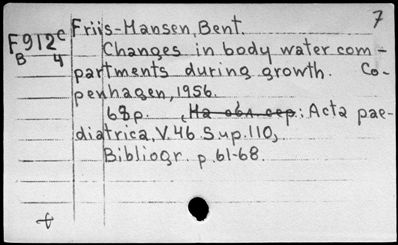 7
Friis-Hansen, Bent.
F912c
B 4
Changes in body water com-
partments during growth. Co-
penhagen, 1956.
68p. (На обл. сер: Acta pae-
diatrica, V.46 Sup.110,
Bibliogr. p.61-68.